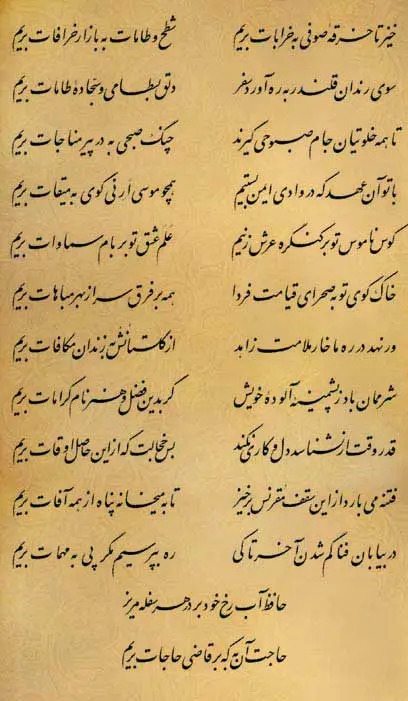 خیز تا خرقهٔ صوفی به خرابات بریم شطح و طامات به بازار خرافات بریم
سوی رندان قلندر به ره آورد سفر دلق بسطامی و سجادهٔ طامات بریم
تا همه خلوتیان جام صبوحی گیرند چنگ صبحی به در پیر مناجات بریم
با تو آن عهد که در وادی ایمن بستیم همچو موسی ارنی گوی به میقات بریم
کوس ناموس تو بر کنگرهٔ عرش زنیم علم عشق تو بر بام سماوات بریم
خاک کوی تو به صحرای قیامت فردا همه بر فرق سر از بهر مباهات بریم
ور نهد در ره ما خار ملامت زاهد از گلستانش به زندان مکافات بریم
شرممان باد ز پشمینهٔ آلودهٔ خویش گر بدین فضل و هنر نام کرامات بریم
قدر وقت ار نشناسد دل و کاری نکند بس خجالت که از این حاصل اوقات بریم
فتنه می بارد از این سقف مقرنس برخیز تا به میخانه پناه از همه آفات بریم
در بیابان فنا گم شدن آخر تا کی ره بپرسیم مگر پی به مهمات بریم
حافظ آب رخ خود بر در هر سفله مریز
حاجت آن به که بر قاضی حاجات بریم